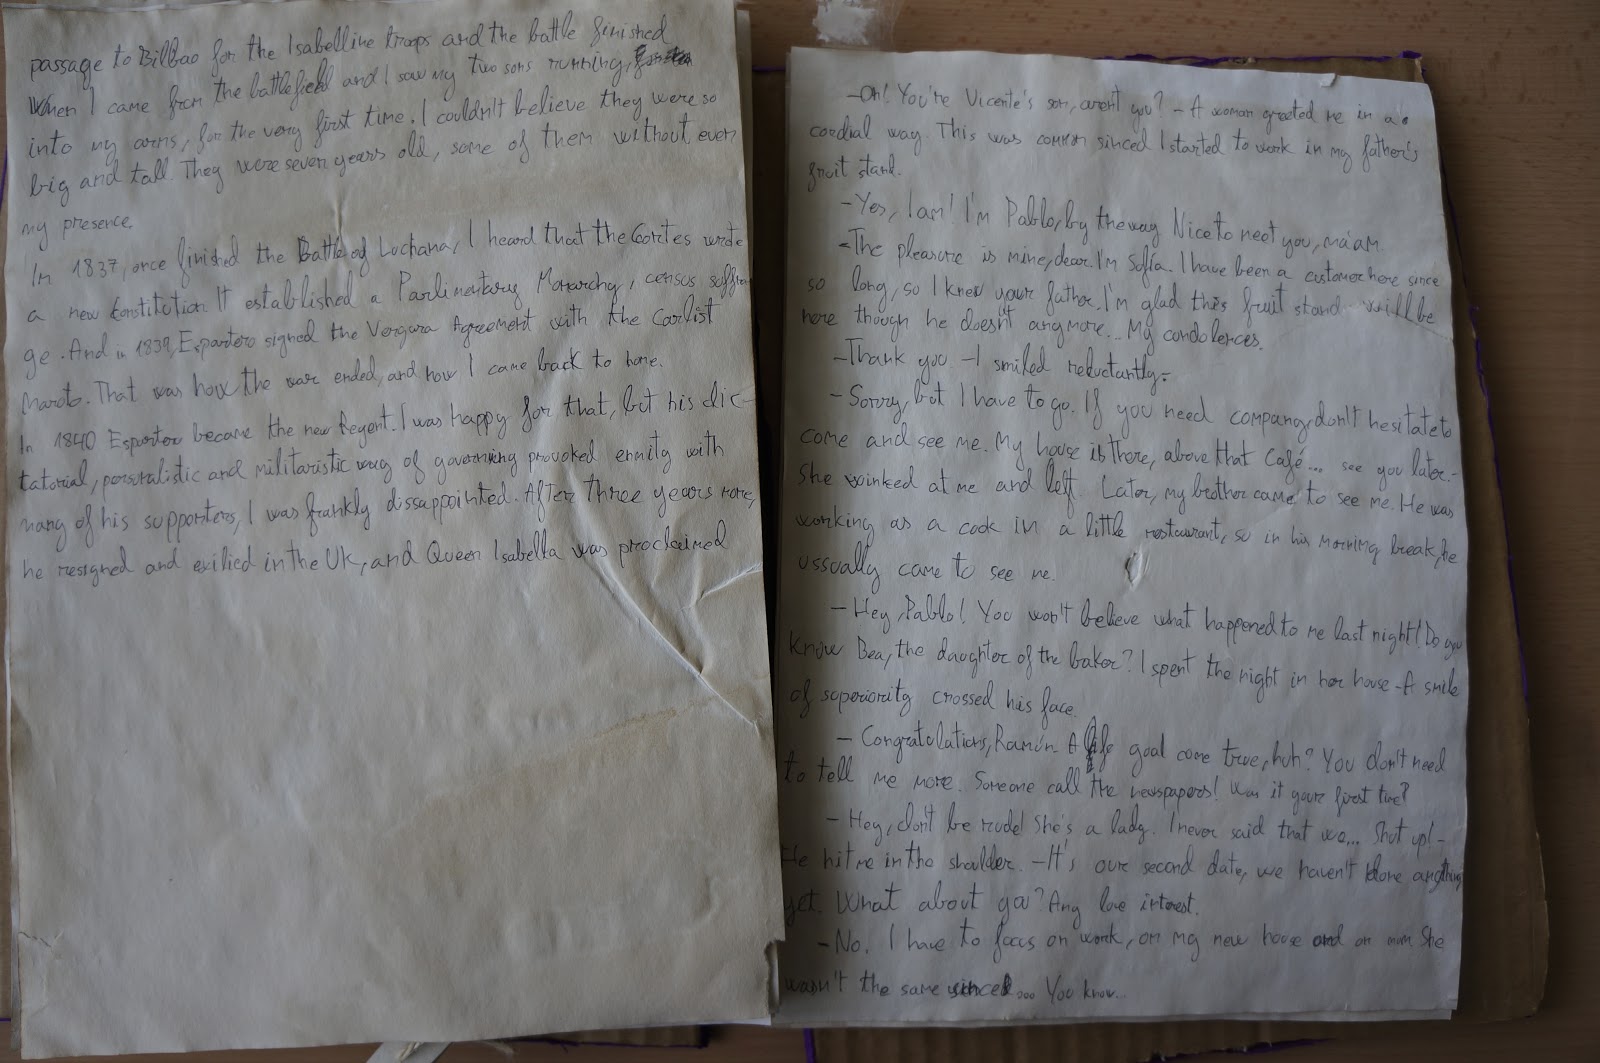 passage to Bilbao for the Isabelline troops and the battle finished
When I came from the battlefield and I saw my two sons running,
into my arms, for the very first time. I couldn't believe they were so
big and tall. They were seven years old, some of them without even
my presence.
In 1837, once finished the Battle of Luchana, I heard that the Cortes wrote
a new Constitution. It established a Parlimentary Monarchy, census suffra
ge. And in 1839, Espartero signed the Vergara Agreement with the Carlist
Maroto. That was how the war ended, and how I came back to home.
In 1840 Espartero became the new Regent. I was happy for that, but his dic-
tatorial, personalistic and militaristic way of governing provoked enmity with
many of his supporters, I was frankly dissappointed. After three years more,
he resigned and exilied in the UK, and Queen Isabella was proclaimed
-Oh! You're Vicente's son, aren't you? - A woman greeted me in a
cordial way. This was common sinced I started to work in my father's
fruit stand.
-Yes, I am! I'm Pablo, by the way. Nice to meet you, ma'am.
-The pleasure is mine, dear. I'm Sofía. I have been a customer here since
so long, so I knew your father. I'm glad this fruit stand will be
here though he doesn't anymore... My condolences.
-Thank you -I smiled reluctantly-
-Sorry, but I have to go. If you need company, don't hesitate to
come and see me. My house is there, above that Café... see you later.-
She winked at me and left. Later, my brother came to see me. He was
working as a cook in a little restaurant, so in his morning break, he
ussually came to see me.
-Hey, Pablo! You won't believe what happened to me last night! Do you
know Bea, the daughter of the baker? I spent the night in her house -A smile
of superiority crossed his face.
-Congratulations, Ramón. A life goal come true, huh? You don't need
to tell me more. Someone call the newspapers! Was it your first time?
-Hey, don't be rude! She's a lady. I never said that we... Shut up! -
He hit me in the shoulder. -It's our second date, we haven't done anything
yet. What about ya? Any love interest.
-No. I have to focus on work, on my new house and on mum. She
wasn't the same sinced... You know...